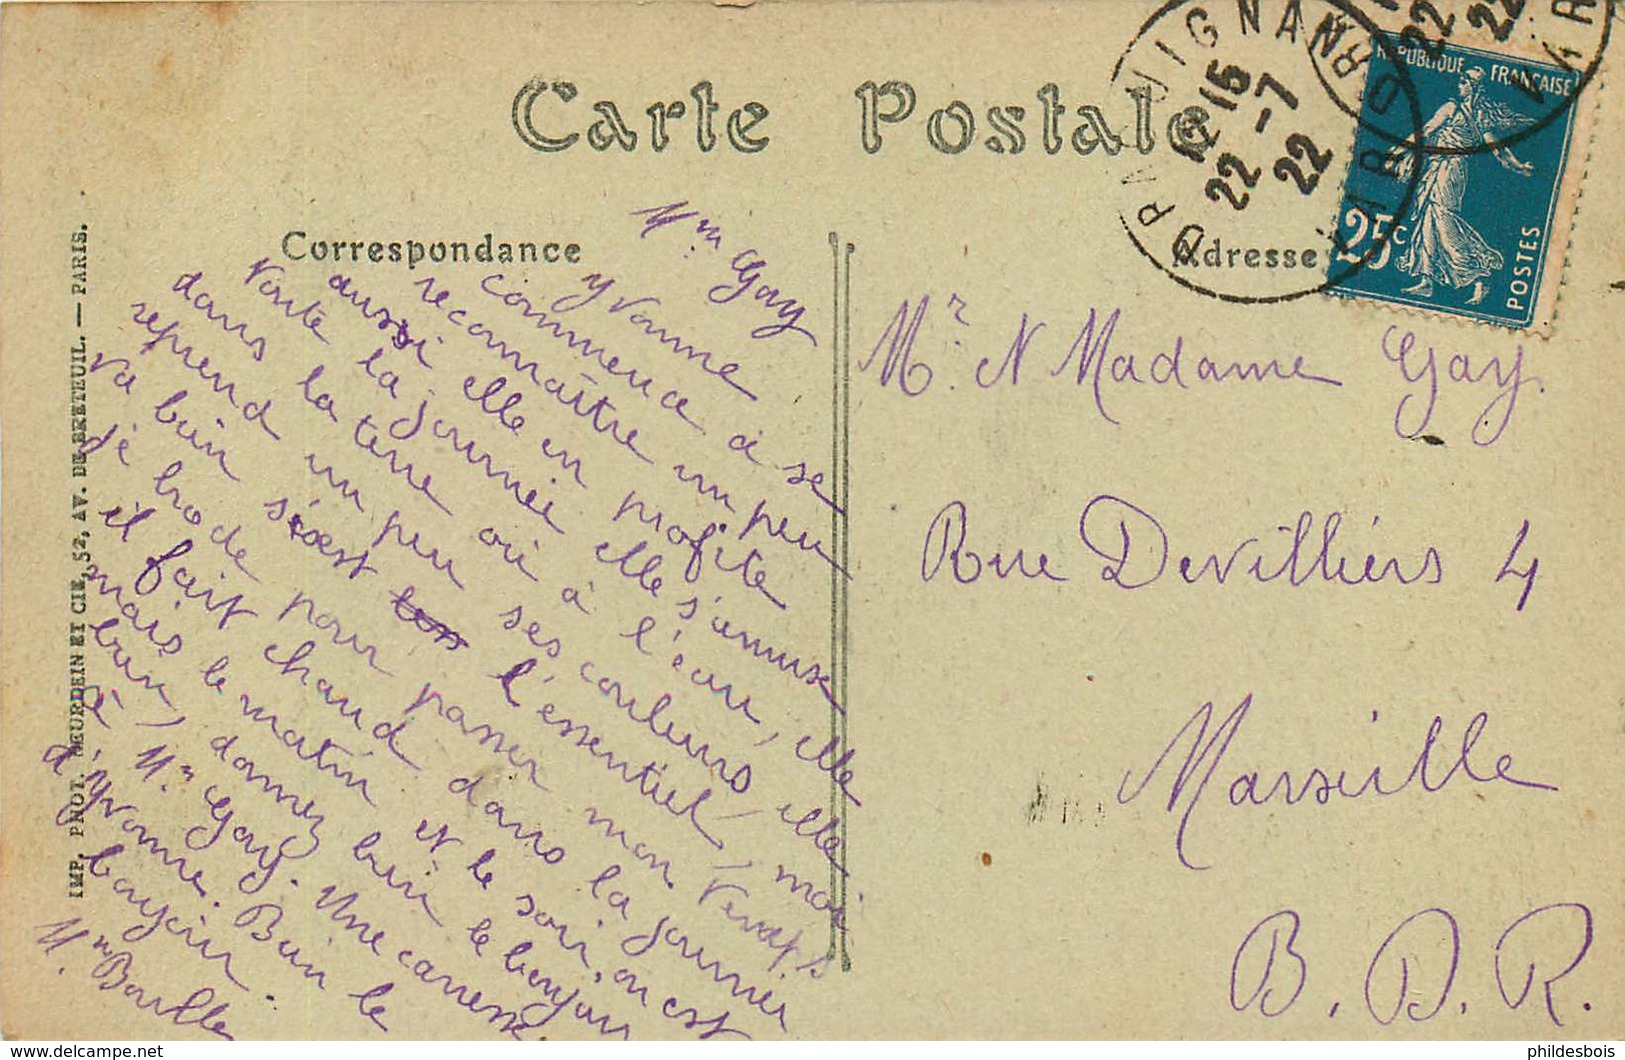 Carte Postale
Correspondance
Adresse
RÉPUBLIQUE FRANÇAISE
25c
POSTES
12 15
22 - 7
22
VAR
IMP. PHOT. NEURDEIN ET CIE, 52, AV. DE BRETEUIL. — PARIS.
Mme Gay
Yvonne
commence à se
reconnaître un peu
aussi elle en profite
toute la journée elle s'amuse
dans la terre où à l'eau, elle
reprend un peu ses couleurs, elle
va bien s'est l'essentiel, moi
je brode pour passer mon temps
il fait chaud dans la journée
mais le matin et le soir, on est
bien, donnez bien le bonjour
à Mr Gay. Une caresse
d'Yvonne. Bien le
bonjour.
Mme Boulle
Mr. et Madame Gay.
Rue Devilliers 4
Marseille
B. D. R.
phildesbois
www.delcampe.net